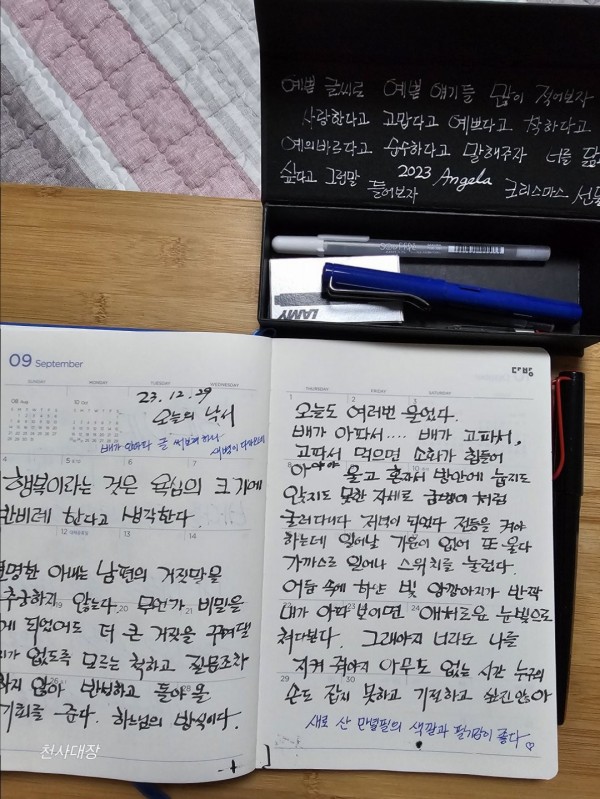 예쁜 글씨로 예쁜 얘기들 많이 적어보자
사랑한다고 고맙다고 예쁘다고 착하다고
예의바르다고 순수하다고 말해주자 너를 닮고
싶다고 그런말 들어보자 2023 Angela 크리스마스 선물
LAMY
09 September
SUNDAY MONDAY TUESDAY WEDNESDAY
23. 12. 29
오늘의 낙서
배가 글 써보려 하니
4 5 6 7
행복이라는 것은 욕심의 크기에
반비례 한다고 생각한다.
12 13 14
현명한 아내는 남편의 거짓말을
추궁하지 않는다. 무언가 비밀을
알게 되었어도 더 큰 거짓을 꾸며댈
없도록 모르는 척하고 질문조차
하지 않아 반성하고 돌아올
기회를 준다. 하느님의 방식이다.
천사대장
THURSDAY FRIDAY SATURDAY
1 2 3
오늘도 여러번 울었다.
배가 아파서.... 배가 고파서,
고파서 먹으면 소화가 힘들어
아야야야 울고 혼자서 방안에 눕지도
앉지도 못한 자세로 굼벵이처럼
굴러다니다 저녁이 되었다 전등을 켜야
하는데 일어날 기운이 없어 또 울다
가까스로 일어나 스위치를 눌렀다.
어둠 속에 하얀 빛 강아지가 반짝
내가 아파 보이면 애처로운 눈빛으로
쳐다본다. 그래 너라도 나를
지켜 줘야지 아무도 없는 시간 누구의
손도 잡지 못하고 기절하고 싶진 않아
새로 산 만년필의 색깔과 필기감이 좋다 ♡